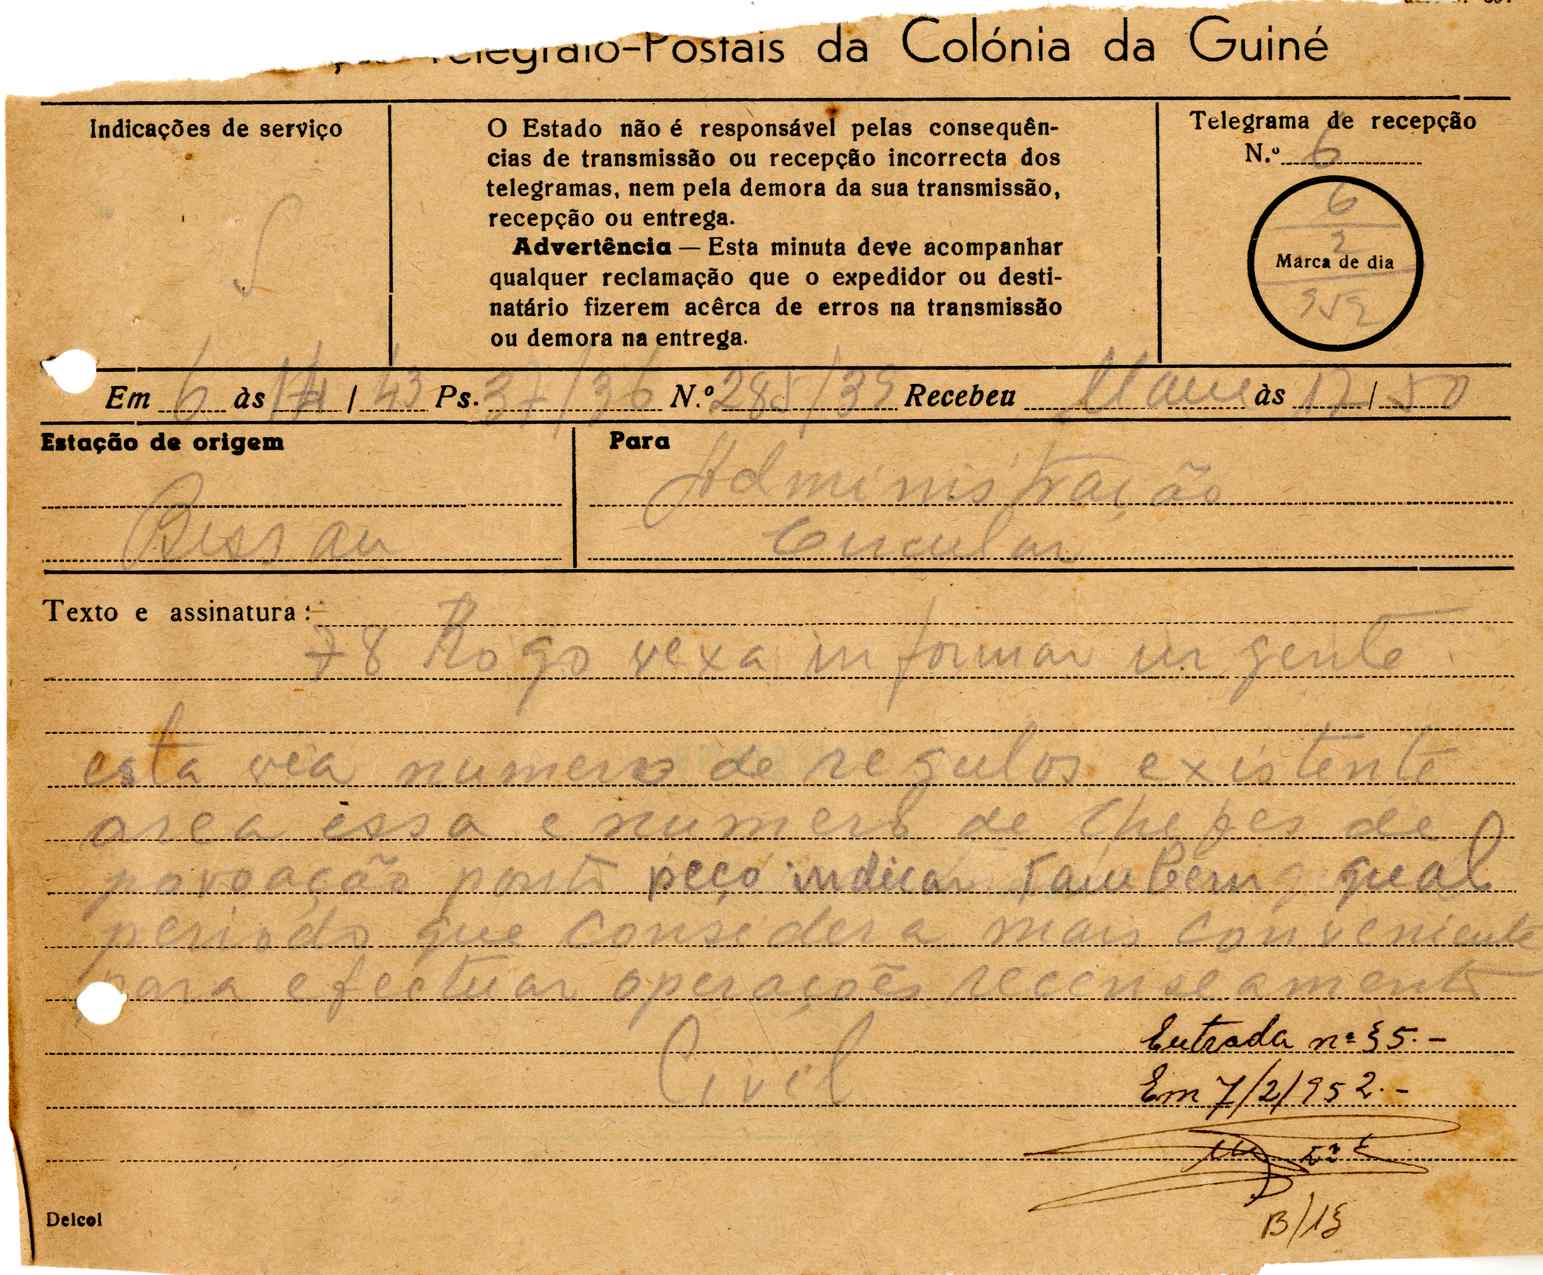 Telegrafo-Postais da Colónia da Guiné
Indicações de serviço
O Estado não é responsável pelas consequên-
cias de transmissão ou recepção incorrecta dos
telegramas, nem pela demora da sua transmissão,
recepção ou entrega.
Advertência — Esta minuta deve acompanhar
qualquer reclamação que o expedidor ou desti-
natário fizerem acêrca de erros na transmissão
ou demora na entrega.
Telegrama de recepção
N.º 6
6
2
952
Marca de dia
Em 6 às / 43 Ps. 37/36 N.º 285/39 Recebeu às 17/50
Estação de origem
Bissau
Para
Administração
Circular
Texto e assinatura:
78 Rogo vexa informar urgente
esta via numero de regulos existente
area essa e numero de chefes de
povoação ponto peço indicar também qual
periodo que considera mais conveniente
para efectuar operações recenseamento
Civil
Entrada nº 35.-
Em 7/2/952.-
B/13
Delcol